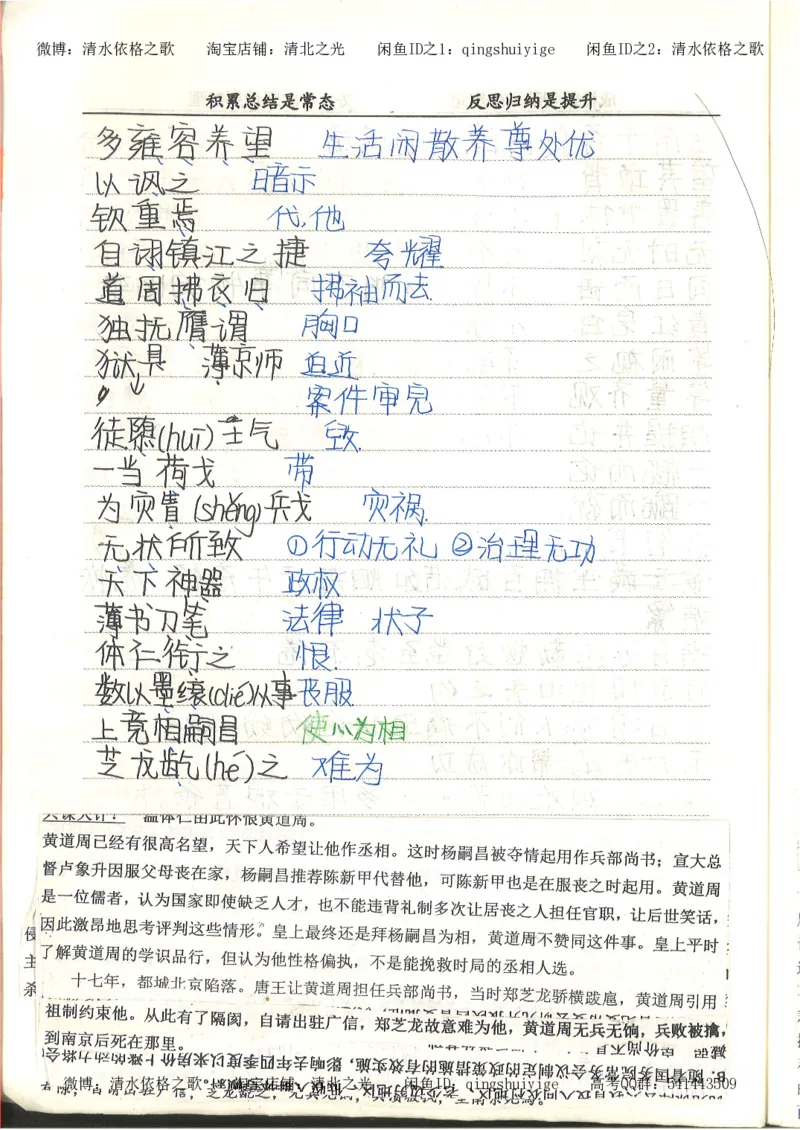 微博：清水依格之歌 淘宝店铺：清北之光 闲鱼ID之1：qingshuiyige 闲鱼ID之2：清水依格之歌
积累总结是常态 反思归纳是提升
多雍容养望 生活闲散养尊处优
以讽之 暗示
钦重焉 代,他
自诩镇江之捷 夸耀
道周拂衣归 拂袖而去
独抚膺谓 胸口
狱具 薄京师 迫近
案件审完
徒隳(huī)士气 毁
一当荷戈 带
为灾眚(shěng)兵戈 灾祸
无状所致 ①行动无礼 ②治理无功
天下神器 政权
薄书刀笔 法律 状子
体仁衔之 恨
数以墨缞(dié)从事丧服
上竟相嗣昌 使心为相
芝龙龁(hé)之 难为
温体仁由此怀恨黄道周。
黄道周已经有很高名望，天下人希望让他作丞相。这时杨嗣昌被夺情起用作兵部尚书；宣大总
督卢象升因服父母丧在家，杨嗣昌推荐陈新甲代替他，可陈新甲也是在服丧之时起用。黄道周
是一位儒者，认为国家即使缺乏人才，也不能违背礼制多次让居丧之人担任官职，让后世笑话，
因此激昂地思考评判这些情形。皇上最终还是拜杨嗣昌为相，黄道周不赞同这件事。皇上平时
了解黄道周的学识品行，但认为他性格偏执，不是能挽救时局的丞相人选。
十七年，都城北京陷落。唐王让黄道周担任兵部尚书，当时郑芝龙骄横跋扈，黄道周引用
祖制约束他。从此有了隔阂，自请出驻广信，郑芝龙故意难为他，黄道周无兵无饷，兵败被擒，
到南京后死在那里。
B. 随着国务院常务会议制定的政策措施的有效实施，影响去年四季度以来房价上涨的动力将会
微博：清水依格之歌 淘宝店铺：清北之光 闲鱼ID：qingshuiyige 高考QQ群：541443509